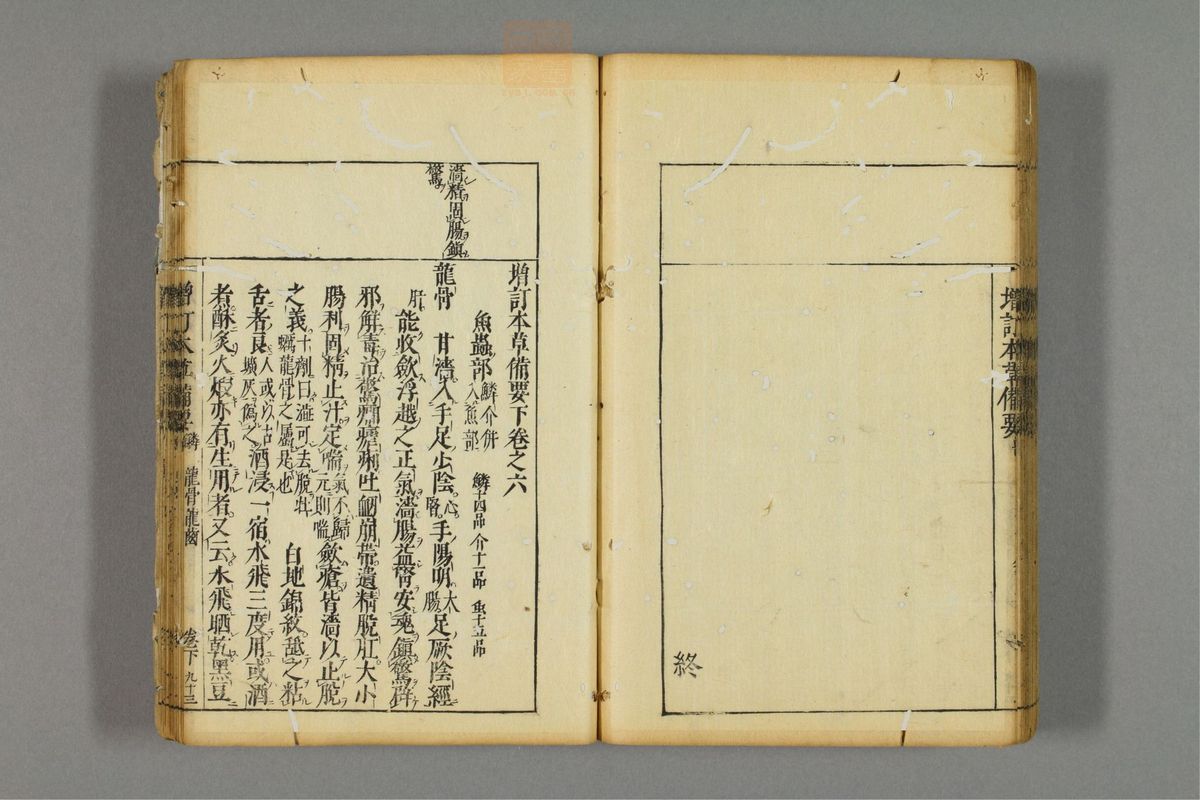 終
增訂本草備要
增訂本草備要下卷之六
魚蟲部 鱗介併入魚部 鱗十四品 介十一品 虫十五品
濇精固腸鎮
驚
龍骨 甘濇入手足少陰心腎手陽明大腸足厥陰經
肝能收斂浮越之正氣濇腸益腎安魂鎮驚辟
邪解毒治驚癎瘧痢吐衂崩帶遺精脫肛大小
腸利固精止汗定喘氣不歸元則喘斂瘡皆濇以止脫
之義十劑曰濇可去脫牡蠣龍骨之屬是也 白地錦紋舐之粘
舌者良人或以古壙灰偽之酒浸一宿水飛三度用或酒
煮酥炙火煆亦有生用者又云水飛晒乾黑豆
增訂本草備要 鱗 龍骨龍齒 卷下 九十三